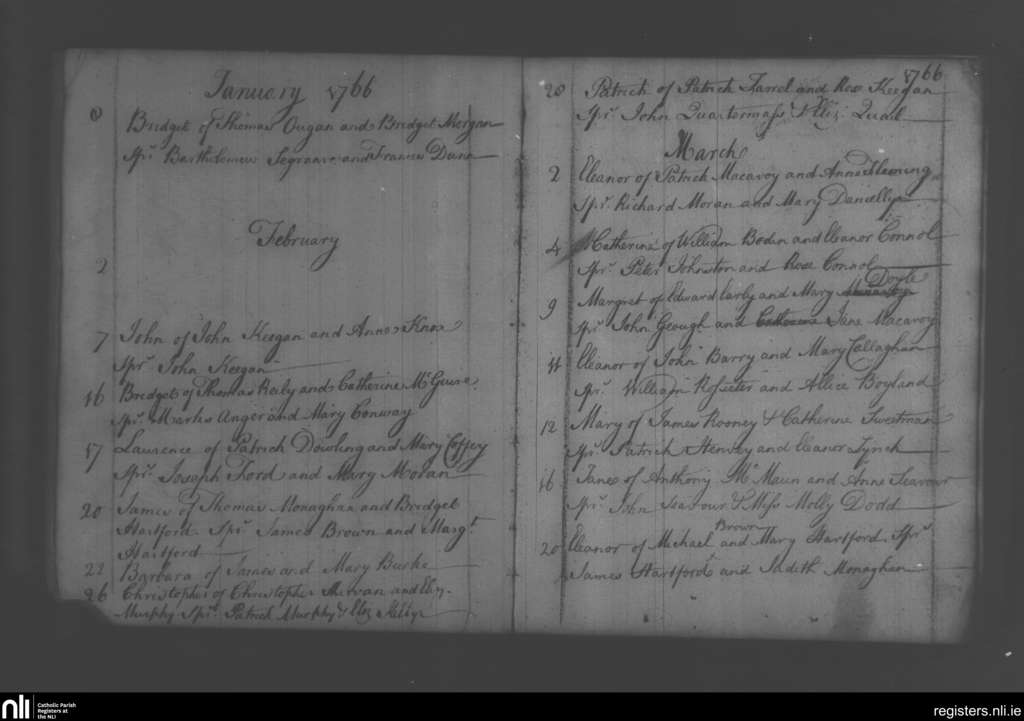 January 1766
8 Bridget of Thomas Dugan and Bridget Morgan
Spr. Bartholomew Segrave and Frances Dunn
February
2
7 John of John Keegan and Anne Knox
Spr. John Keegan
16 Bridget of Thomas Reily and Catherine McGuire
Spr. Marks Anger and Mary Conway
17 Laurence of Patrick Dowling and Mary Coffey
Spr. Joseph Ford and Mary Moran
20 James of Thomas Monaghan and Bridget
Hartford. Spr. James Brown and Margt.
Hartford
22 Barbara of James and Mary Burke
26 Christopher of Christopher and Eliz.
Murphy Spr. Patrick Murphy & Eliz Kelly
1766
20 Patrick of Patrick Farrel and Rose Keegan
Spr. John Quartermass & Eliz. Quail
March
2 Eleanor of Patrick Macavoy and Anne Fleming
Spr. Richard Moran and Mary
4 Catherine of William Boden and Eleanor Connol
Spr. Peter Johnston and Rose Connol
Doyle
9 Margret of Edward Early and Mary
Spr. John Geough and Catherine Jane Macavoy
11 Eleanor of John Barry and Mary Callaghan
Spr. William and Allice Boyland
12 Mary of James Rooney & Catherine Sweetman
Spr. Patrick and Eleanor Lynch
16 Jane of Anthony Mc Maun and Anne Seavour
Spr. John Seavour & Miss Molly Dodd
Brown
20 Eleanor of Michael and Mary Hartford. Spr.
James Hartford and Judith Monaghan
nli Catholic Parish
Registers at
the NLI
registers.nli.ie